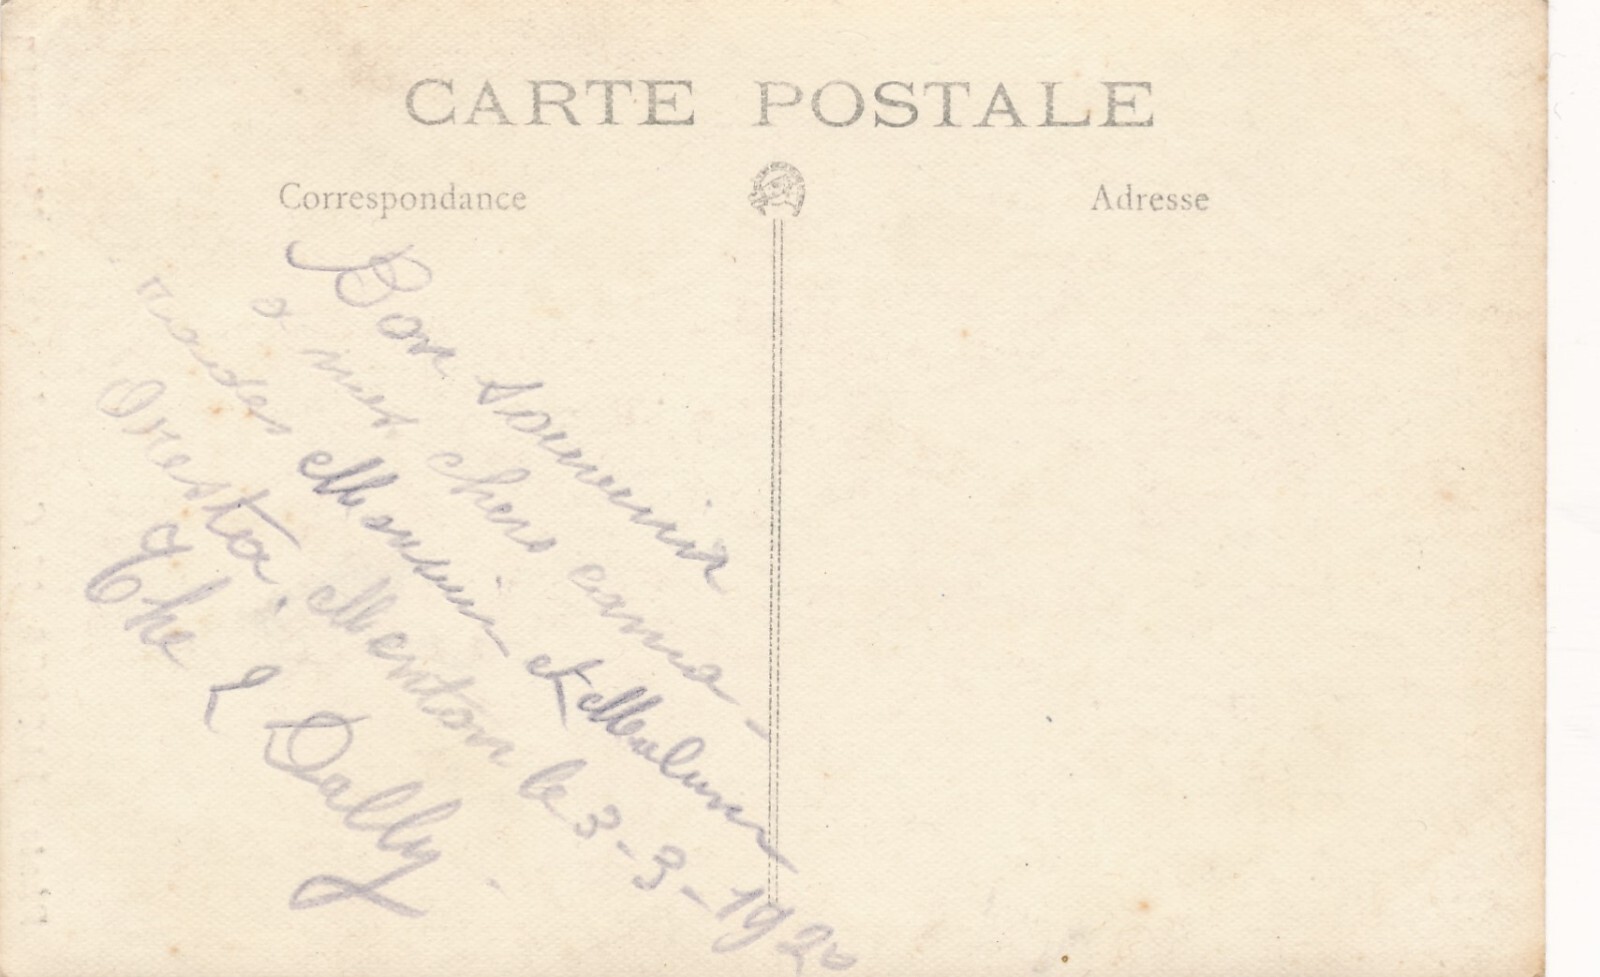 CARTE POSTALE
Correspondance
Adresse
Bon souvenir
a mes chers cama-
rades et
Oresta, Menton le 3-3-1920
The Dally